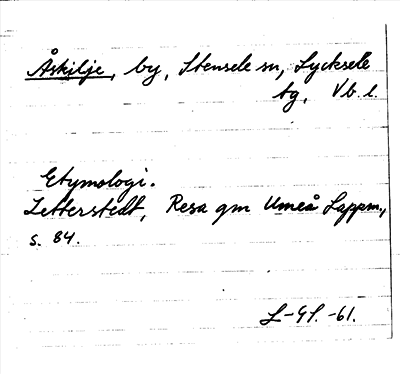 Åskilje, by, Stensele sn, Lycksele
tg, Vb. l.
Etymologi.
Zetterstedt, Resa gm Umeå Lappm.,
s. 84.
L-GL. -61.